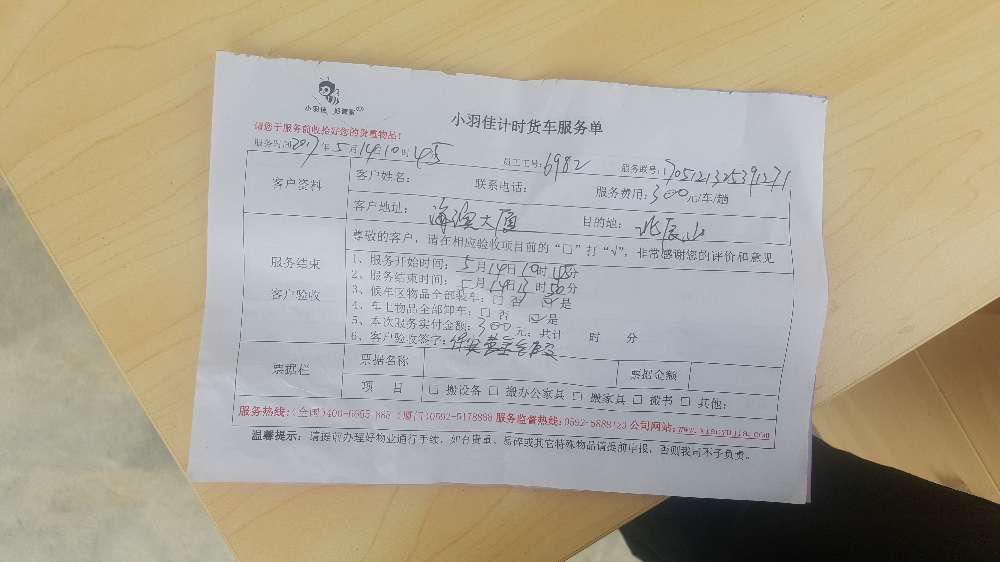 小羽佳 好管家
小羽佳计时货车服务单
请您于服务前收拾好您的贵重物品!
服务时间2017年5月14日10时45
员工工号:6982
服务账号:1705121325391271
客户资料
客户姓名:
联系电话:
服务费用:300元/车/趟
客户地址:
大厦
目的地: 北辰山
服务结束
客户验收
尊敬的客户,请在相应验收项目前的“□”打“√”,非常感谢您的评价和意见
1、服务开始时间:5月14日10时45分
2、服务结束时间:5月14日13时
分
3、候车区物品全部装车:□否 是
4、车上物品全部卸车:□否 是
5、本次服务实付金额:300元;共计 时 分
6、客户验收签字:
票据栏
票据名称
票据金额
项 目
□ 搬设备 □ 搬办公家具 □ 搬家具 □ 搬书 □ 其他:
服务热线:(全国)400-6665-888 (厦门)0592-5178888 服务监督热线:0592-5888123 公司网站:www.xiaoyujia.com
温馨提示: 请提前办理好物业通行手续,如有贵重、易碎或其它特殊物品请提前申报,否则我司不予负责。